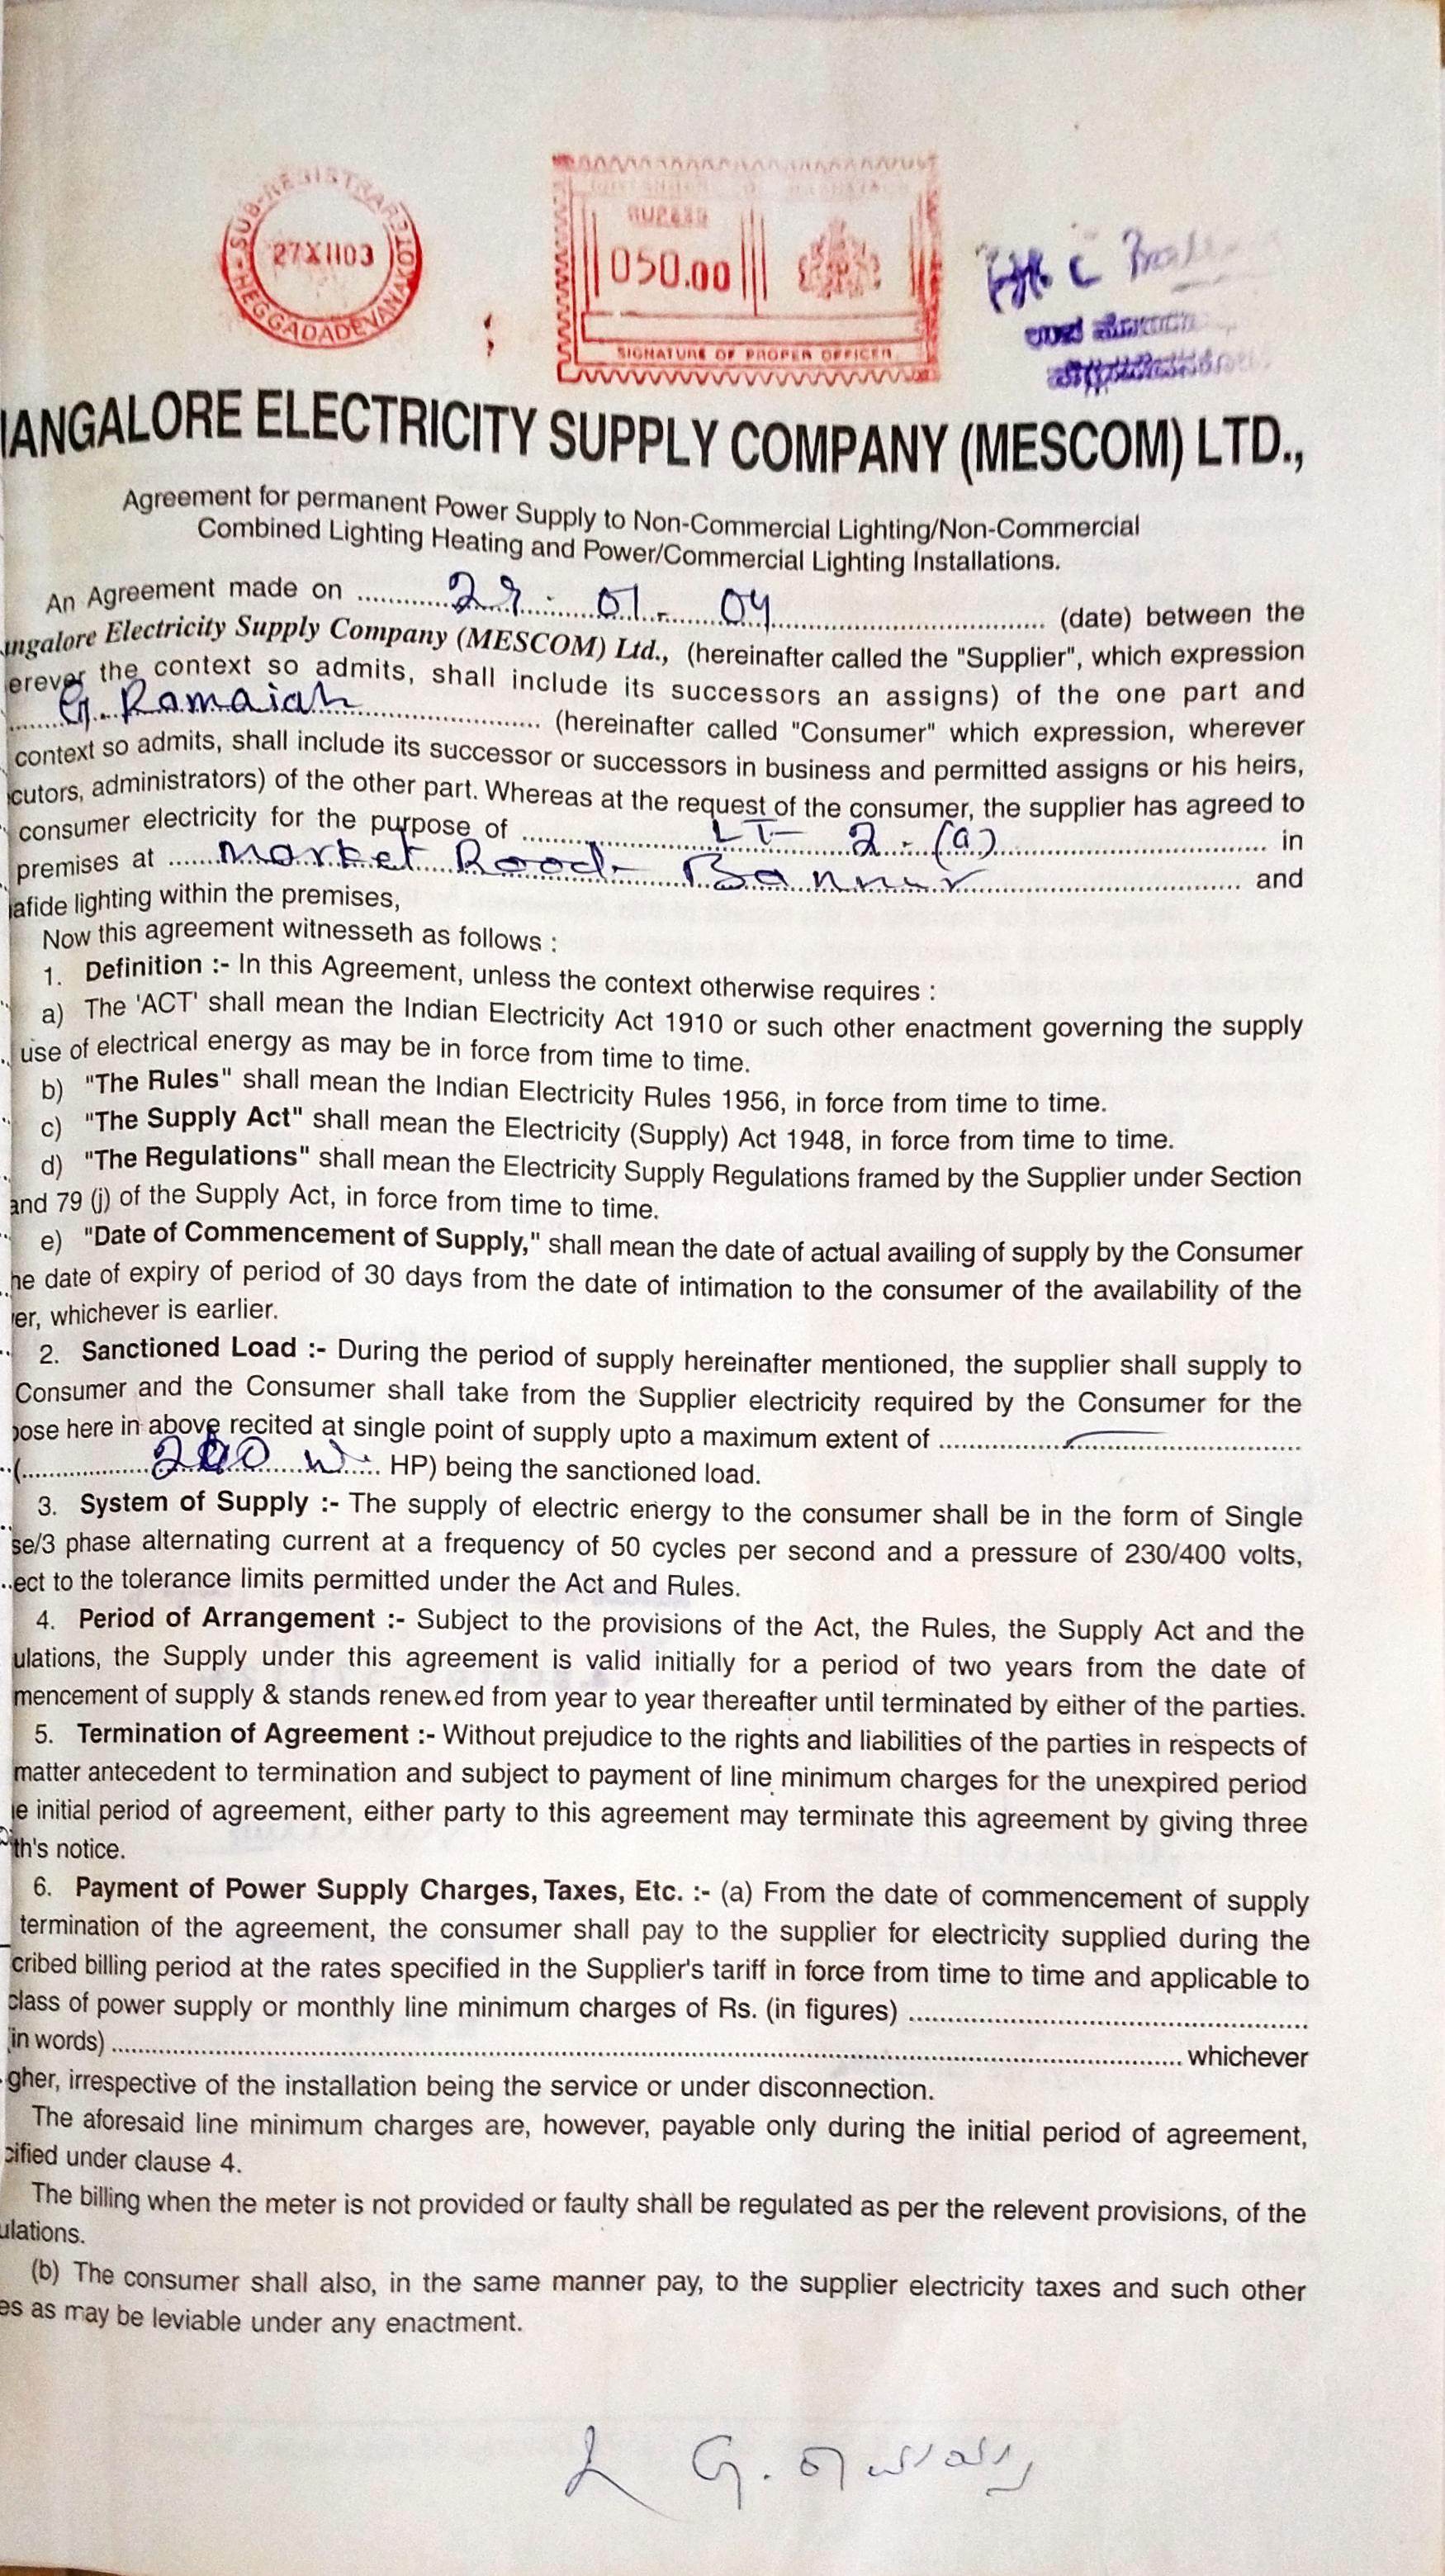 SUB-REGISTRAR
27XII03
HEGGADADEVANAKOTE
RUPEES
050.00
SIGNATURE OF PROPER OFFICER
ANGALORE ELECTRICITY SUPPLY COMPANY (MESCOM) LTD.,
Agreement for permanent Power Supply to Non-Commercial Lighting/Non-Commercial
Combined Lighting Heating and Power/Commercial Lighting Installations.
An Agreement made on ............ 01 - 04 ............ (date) between the
ngalore Electricity Supply Company (MESCOM) Ltd., (hereinafter called the "Supplier", which expression
erever the context so admits, shall include its successors an assigns) of the one part and
G. Ramaiah ............ (hereinafter called "Consumer" which expression, wherever
context so admits, shall include its successor or successors in business and permitted assigns or his heirs,
cutors, administrators) of the other part. Whereas at the request of the consumer, the supplier has agreed to
consumer electricity for the purpose of ............ LT - 2 - (a) ............ in
premises at ...... Market Road Bannur ............ and
afide lighting within the premises,
Now this agreement witnesseth as follows :
1. Definition :- In this Agreement, unless the context otherwise requires :
a) The 'ACT' shall mean the Indian Electricity Act 1910 or such other enactment governing the supply
use of electrical energy as may be in force from time to time.
b) "The Rules" shall mean the Indian Electricity Rules 1956, in force from time to time.
c) "The Supply Act" shall mean the Electricity (Supply) Act 1948, in force from time to time.
d) "The Regulations" shall mean the Electricity Supply Regulations framed by the Supplier under Section
and 79 (j) of the Supply Act, in force from time to time.
e) "Date of Commencement of Supply," shall mean the date of actual availing of supply by the Consumer
he date of expiry of period of 30 days from the date of intimation to the consumer of the availability of the
er, whichever is earlier.
2. Sanctioned Load :- During the period of supply hereinafter mentioned, the supplier shall supply to
Consumer and the Consumer shall take from the Supplier electricity required by the Consumer for the
pose here in above recited at single point of supply upto a maximum extent of ............
(............ 200 W ...... HP) being the sanctioned load.
3. System of Supply :- The supply of electric energy to the consumer shall be in the form of Single
se/3 phase alternating current at a frequency of 50 cycles per second and a pressure of 230/400 volts,
ect to the tolerance limits permitted under the Act and Rules.
4. Period of Arrangement :- Subject to the provisions of the Act, the Rules, the Supply Act and the
ulations, the Supply under this agreement is valid initially for a period of two years from the date of
mencement of supply & stands renewed from year to year thereafter until terminated by either of the parties.
5. Termination of Agreement :- Without prejudice to the rights and liabilities of the parties in respects of
matter antecedent to termination and subject to payment of line minimum charges for the unexpired period
e initial period of agreement, either party to this agreement may terminate this agreement by giving three
th's notice.
6. Payment of Power Supply Charges, Taxes, Etc. :- (a) From the date of commencement of supply
termination of the agreement, the consumer shall pay to the supplier for electricity supplied during the
cribed billing period at the rates specified in the Supplier's tariff in force from time to time and applicable to
class of power supply or monthly line minimum charges of Rs. (in figures) ............
(in words) ............ whichever
gher, irrespective of the installation being the service or under disconnection.
The aforesaid line minimum charges are, however, payable only during the initial period of agreement,
cified under clause 4.
The billing when the meter is not provided or faulty shall be regulated as per the relevent provisions, of the
ulations.
(b) The consumer shall also, in the same manner pay, to the supplier electricity taxes and such other
es as may be leviable under any enactment.